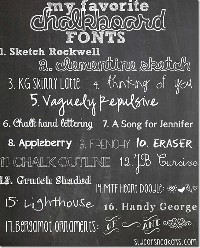 my favorite
chalkboard
FONTS
1. Sketch Rockwell
2. clementine sketch
3. KG SKINNY LATTE 4. thinking of you
5. Vaguely Repulsive
6. Chalk hand lettering 7. A Song for Jennifer
8. Appleberry 9. FRENCHY 10. ERASER
11. CHALK OUTLINE 12. JSB Cursive
13. Grutch Shaded
14. MTF HEART DOODLE:
15. Lighthouse 16. Handy George
17. BERGAMOT ORNAMENTS: